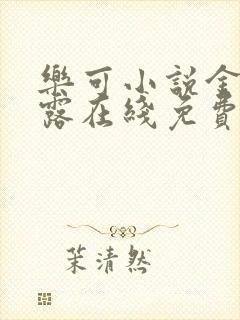 樂可小說金
露在綫免費
茉清然